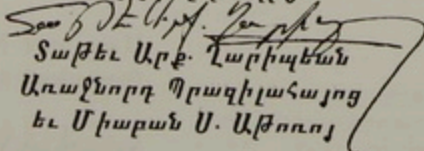 Տաթեւ Արք. Ղարիպեան
Առաջնորդ Պրազիլահայոց
եւ Միաբան Ս. Աթոռոյ